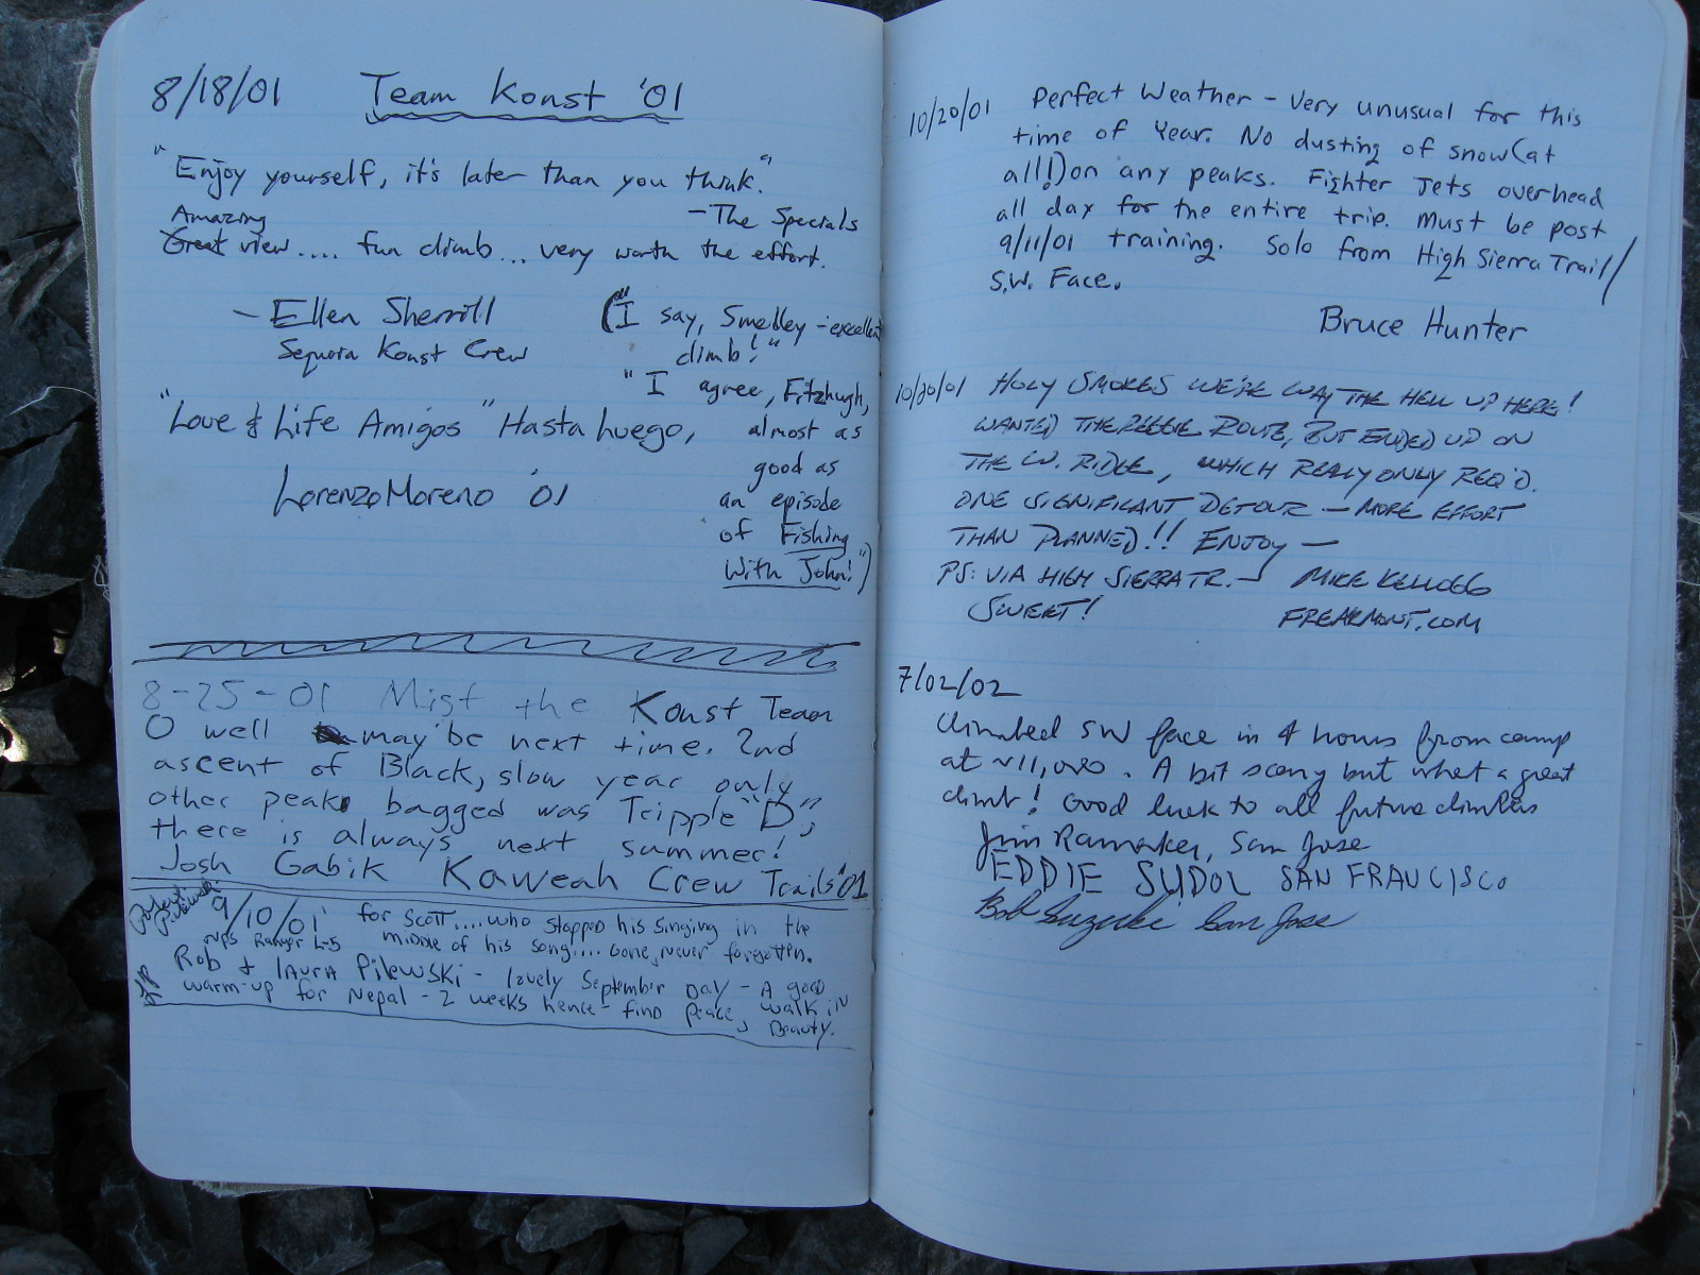 8/18/01 Team Konst '01
"Enjoy yourself, it's later than you think."
- The Specials
Amazing
Great view.... fun climb... very worth the effort.
- Ellen Sherrill
Sequoia Konst Crew
("I say, Smedley - excellent
climb!"
"I agree, Fitzhugh,
almost as
good as
an episode
of Fishing
With John!")
"Love & Life Amigos" Hasta Luego,
Lorenzo Moreno '01
8-25-01 Mist the Konst Team
O well may be next time. 2nd
ascent of Black, slow year only
other peak bagged was Tripple "D",
there is always next summer!
Josh Gabik Kaweah Crew Trails '01
9/10/01 for Scott.... who stopped his singing in the
NPS Ranger L-5 middle of his song.... Gone, never forgotten.
Rob & Laura Pilewski - lovely September Day - A good
warm-up for Nepal - 2 weeks hence - find Peace, walk in
Beauty.
10/20/01 Perfect Weather - Very unusual for this
time of Year. No dusting of snow (at
all!) on any peaks. Fighter Jets overhead
all day for the entire trip. Must be post
9/11/01 training. Solo from High Sierra Trail/
S.W. Face.
Bruce Hunter
10/20/01 HOLY SMOKES WE'RE WAY THE HELL UP HERE!
WANTED THE ROUTE, BUT ENDED UP ON
THE W. RIDGE, WHICH REALLY ONLY REQ'D.
ONE SIGNIFICANT DETOUR - MORE EFFORT
THAN PLANNED!! ENJOY -
PS: VIA HIGH SIERRA TR. - MIKE KELLOGG
SWEET! FREAKMONT.COM
7/02/02
Climbed SW face in 4 hours from camp
at ~11,000. A bit scary but what a great
climb! Good luck to all future climbers
Jim Ramaker, San Jose
EDDIE SUDOL SAN FRANCISCO
Bob Suzuki San Jose